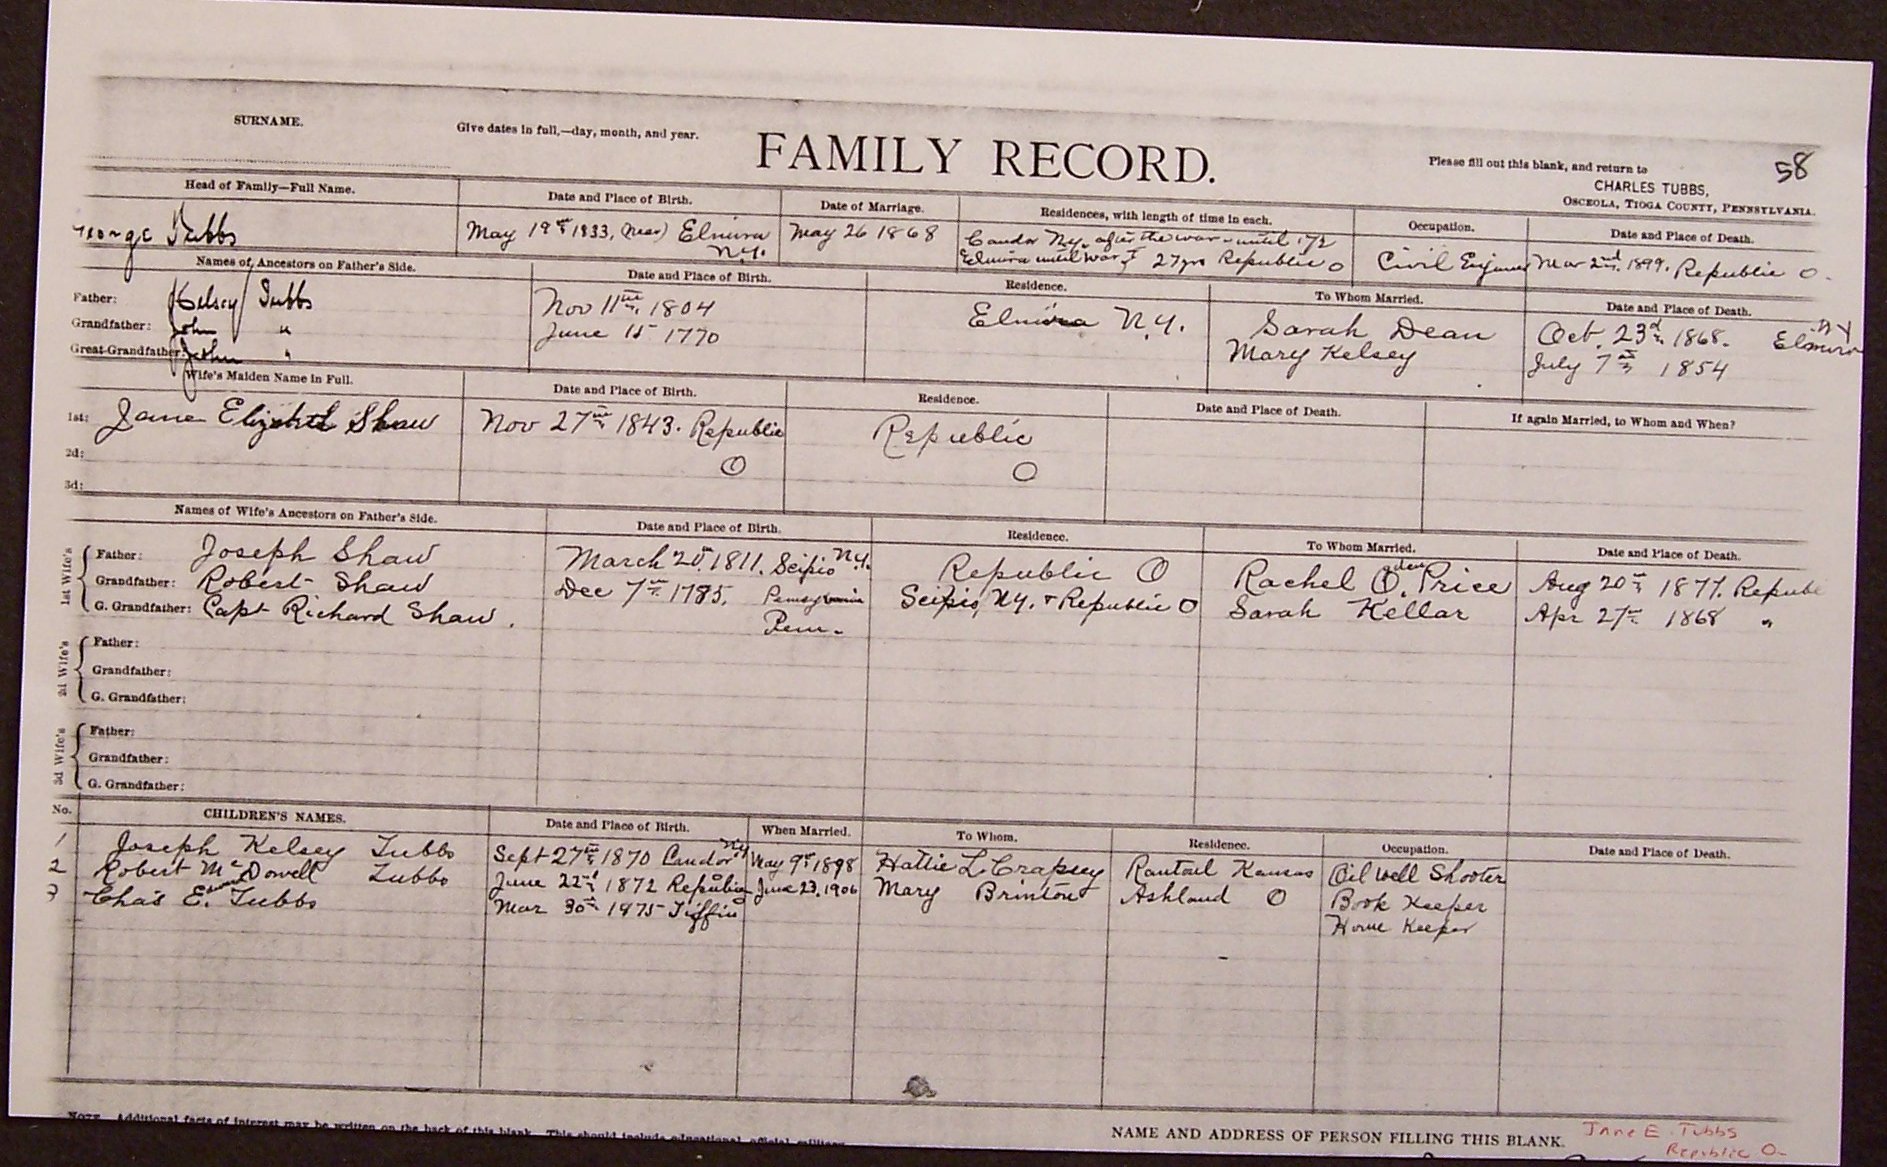 SURNAME.
Give dates in full,—day, month, and year.
FAMILY RECORD.
Please fill out this blank, and return to
58
CHARLES TUBBS,
OSCEOLA, TIOGA COUNTY, PENNSYLVANIA.
Head of Family—Full Name.
Date and Place of Birth.
Date of Marriage.
Residences, with length of time in each.
Occupation.
Date and Place of Death.
George Tubbs
May 19th 1833, (near) Elmira
N.Y.
May 26 1868
Candor N.Y. after the war until '72
Elmira until war & 27 yrs Republic O
Civil Engineer
Mar 2nd. 1899. Republic O.
Names of Ancestors on Father's Side.
Date and Place of Birth.
Residence.
To Whom Married.
Date and Place of Death.
Father: Kelsey Tubbs
Nov 11th. 1804
Elmira N.Y.
Sarah Dean
Oct. 23d. 1868. Elmira N Y
Grandfather: John "
June 15 1770
Mary Kelsey
July 7th 1854
Great-Grandfather: John "
Wife's Maiden Name in Full.
Date and Place of Birth.
Residence.
Date and Place of Death.
If again Married, to Whom and When?
1st: Jane Elizabeth Shaw
Nov 27th 1843. Republic
O
Republic
O
2d:
3d:
Names of Wife's Ancestors on Father's Side.
Date and Place of Birth.
Residence.
To Whom Married.
Date and Place of Death.
1st Wife's
Father: Joseph Shaw
March 20th, 1811. Scipio N.Y.
Republic O
Rachel Ogden Price
Aug 20th 1877. Repub
Grandfather: Robert Shaw
Dec 7th 1785. Pennsylvania
Scipio, N.Y. & Republic O
Sarah Kellar
Apr 27th 1868 "
G. Grandfather: Capt Richard Shaw.
Penn.
2d Wife's
Father:
Grandfather:
G. Grandfather:
3d Wife's
Father:
Grandfather:
G. Grandfather:
No.
CHILDREN'S NAMES.
Date and Place of Birth.
When Married.
To Whom.
Residence.
Occupation.
Date and Place of Death.
1 Joseph Kelsey Tubbs
Sept 27th 1870 Candor NY
May 9th 1898
Hattie L. Crapsey
Rantoul Kansas
Oil Well Shooter
2 Robert McDowell Tubbs
June 22d 1872 Republic O
June 23, 1906
Mary Brinton
Ashland O
Book Keeper
3 Chas E. Tubbs
Mar 30th 1875 Tiffin
Home Keeper
NOTE. Additional facts of interest may be written on the back of this blank. This should include educational, official, military
NAME AND ADDRESS OF PERSON FILLING THIS BLANK.
Jane E. Tubbs
Republic O-